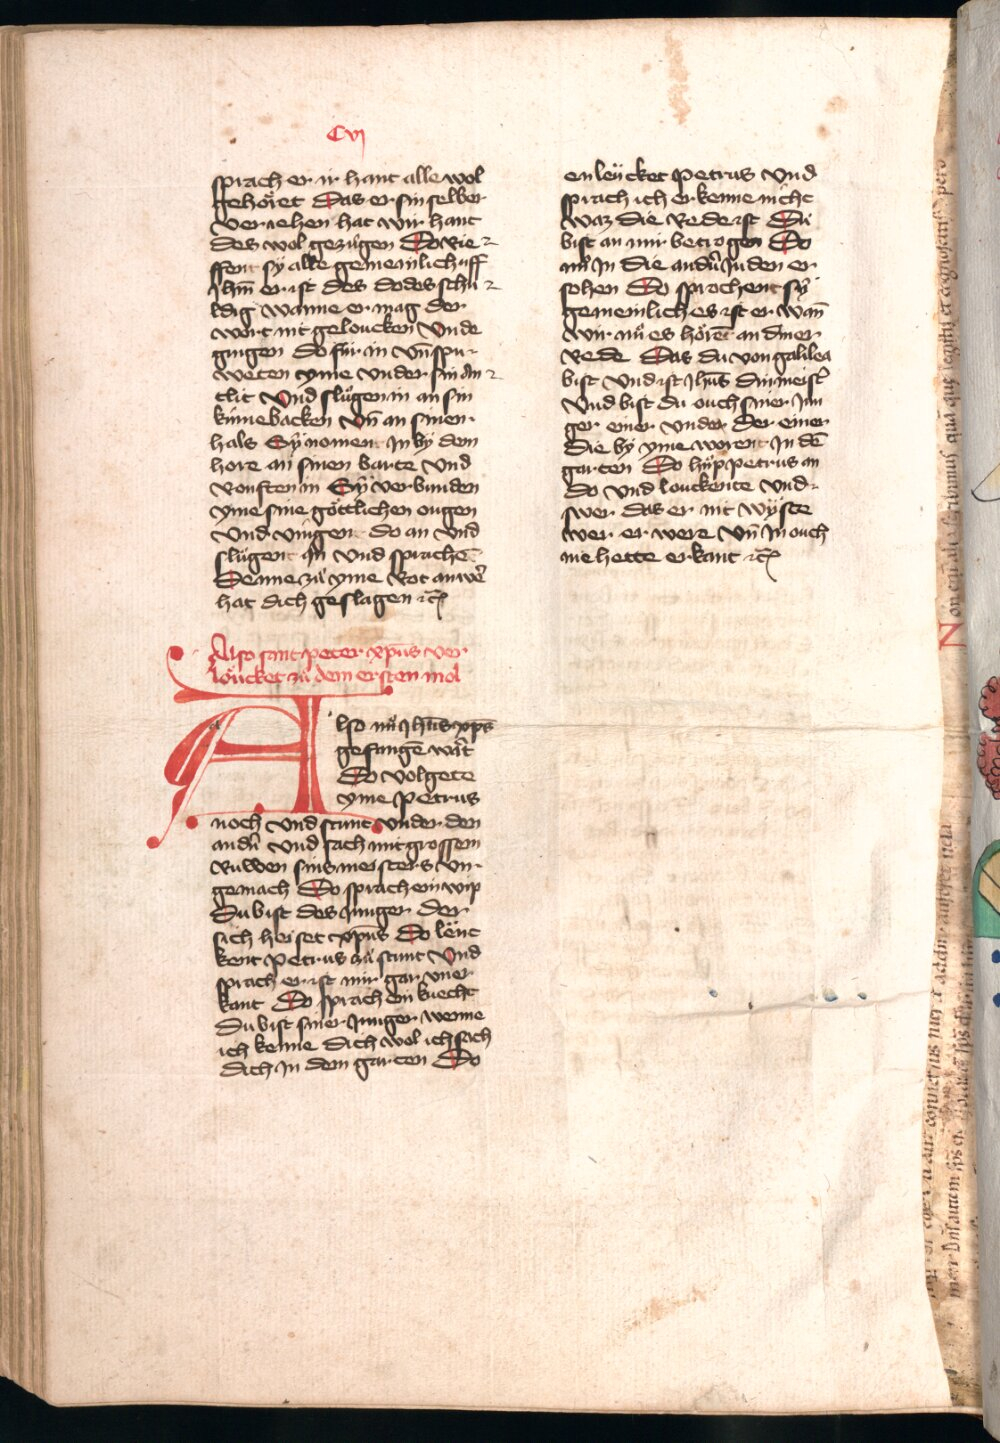 Cvj
sprach er ir hant alle wol
gehöret Das er sin selber
veriehen hat wir hant
des wol gezügen Do rie
ffent sÿ alle gemeinlich uff
Jhm̄ er ist des dodes schu
ldig wanne er mag der
wort nit geloucken Vnde
gingen do für in vn̄ spu
weten yme vnder sin an
tlit Vnd slůgen in an sin
kinnebacken Vn̄ an sinen
hals Sÿ nomen In bÿ dem
hore an sinen barte vnd
rouften in Sÿ verbunden
yme sine göttlichen ougen
Vnd vingent do an vnd
slůgent in vnd sprachē
Denne zů yme Rot an wer
hat dich geslagen ⁊c̄
Also sant peter xp̄us ver
löucket zů dem ersten mol
a
Also nů Jhūs xp̄s
gefangē wart
Do volgete
yme Petrus
noch vnd stunt vnder den
andn̄ vnd sach mit grossem
ruwen sins meisters vn
gemach Do sprach ein wip
Du bist des Junger der
sich heiset xp̄us Do löuc
kent Petrus zů stunt Vnd
sprach er ist mir gar vner
kant Do sprach ein knecht
Du bist siner Junger wenne
ich kenne dich wol ich sach
dich In dem garten Do
en löücket Petrus vnd
sprach ich erkenne nicht
waz die rede ist Du
bist an mir betrogen Do
in In die andn̄ Juden er
sohen Do sprochent sÿ
gemeinlich es ist er wan̄
wir nů es hörēt an diner
rede Das du von galilea
bist vnd ist Jhūs din meist̄
Vnd bist du ouch siner Jun
ger einer vnder der einer
die bÿ yme worent In dē
garten Do hůp petrus an
do vnd louckente vnd
swer das er nit wÿste
wer er were Vn̄ In ouch
nie hette erkant ⁊c̄